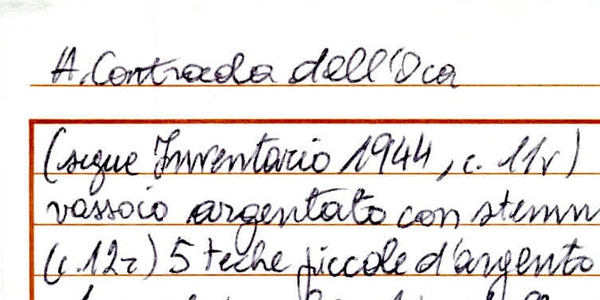 A. Contrada dell'Oca
(segue Inventario 1944, c. 11v)
vassoio argentato con stemm
(c. 12r) 5 teche piccole d'argento